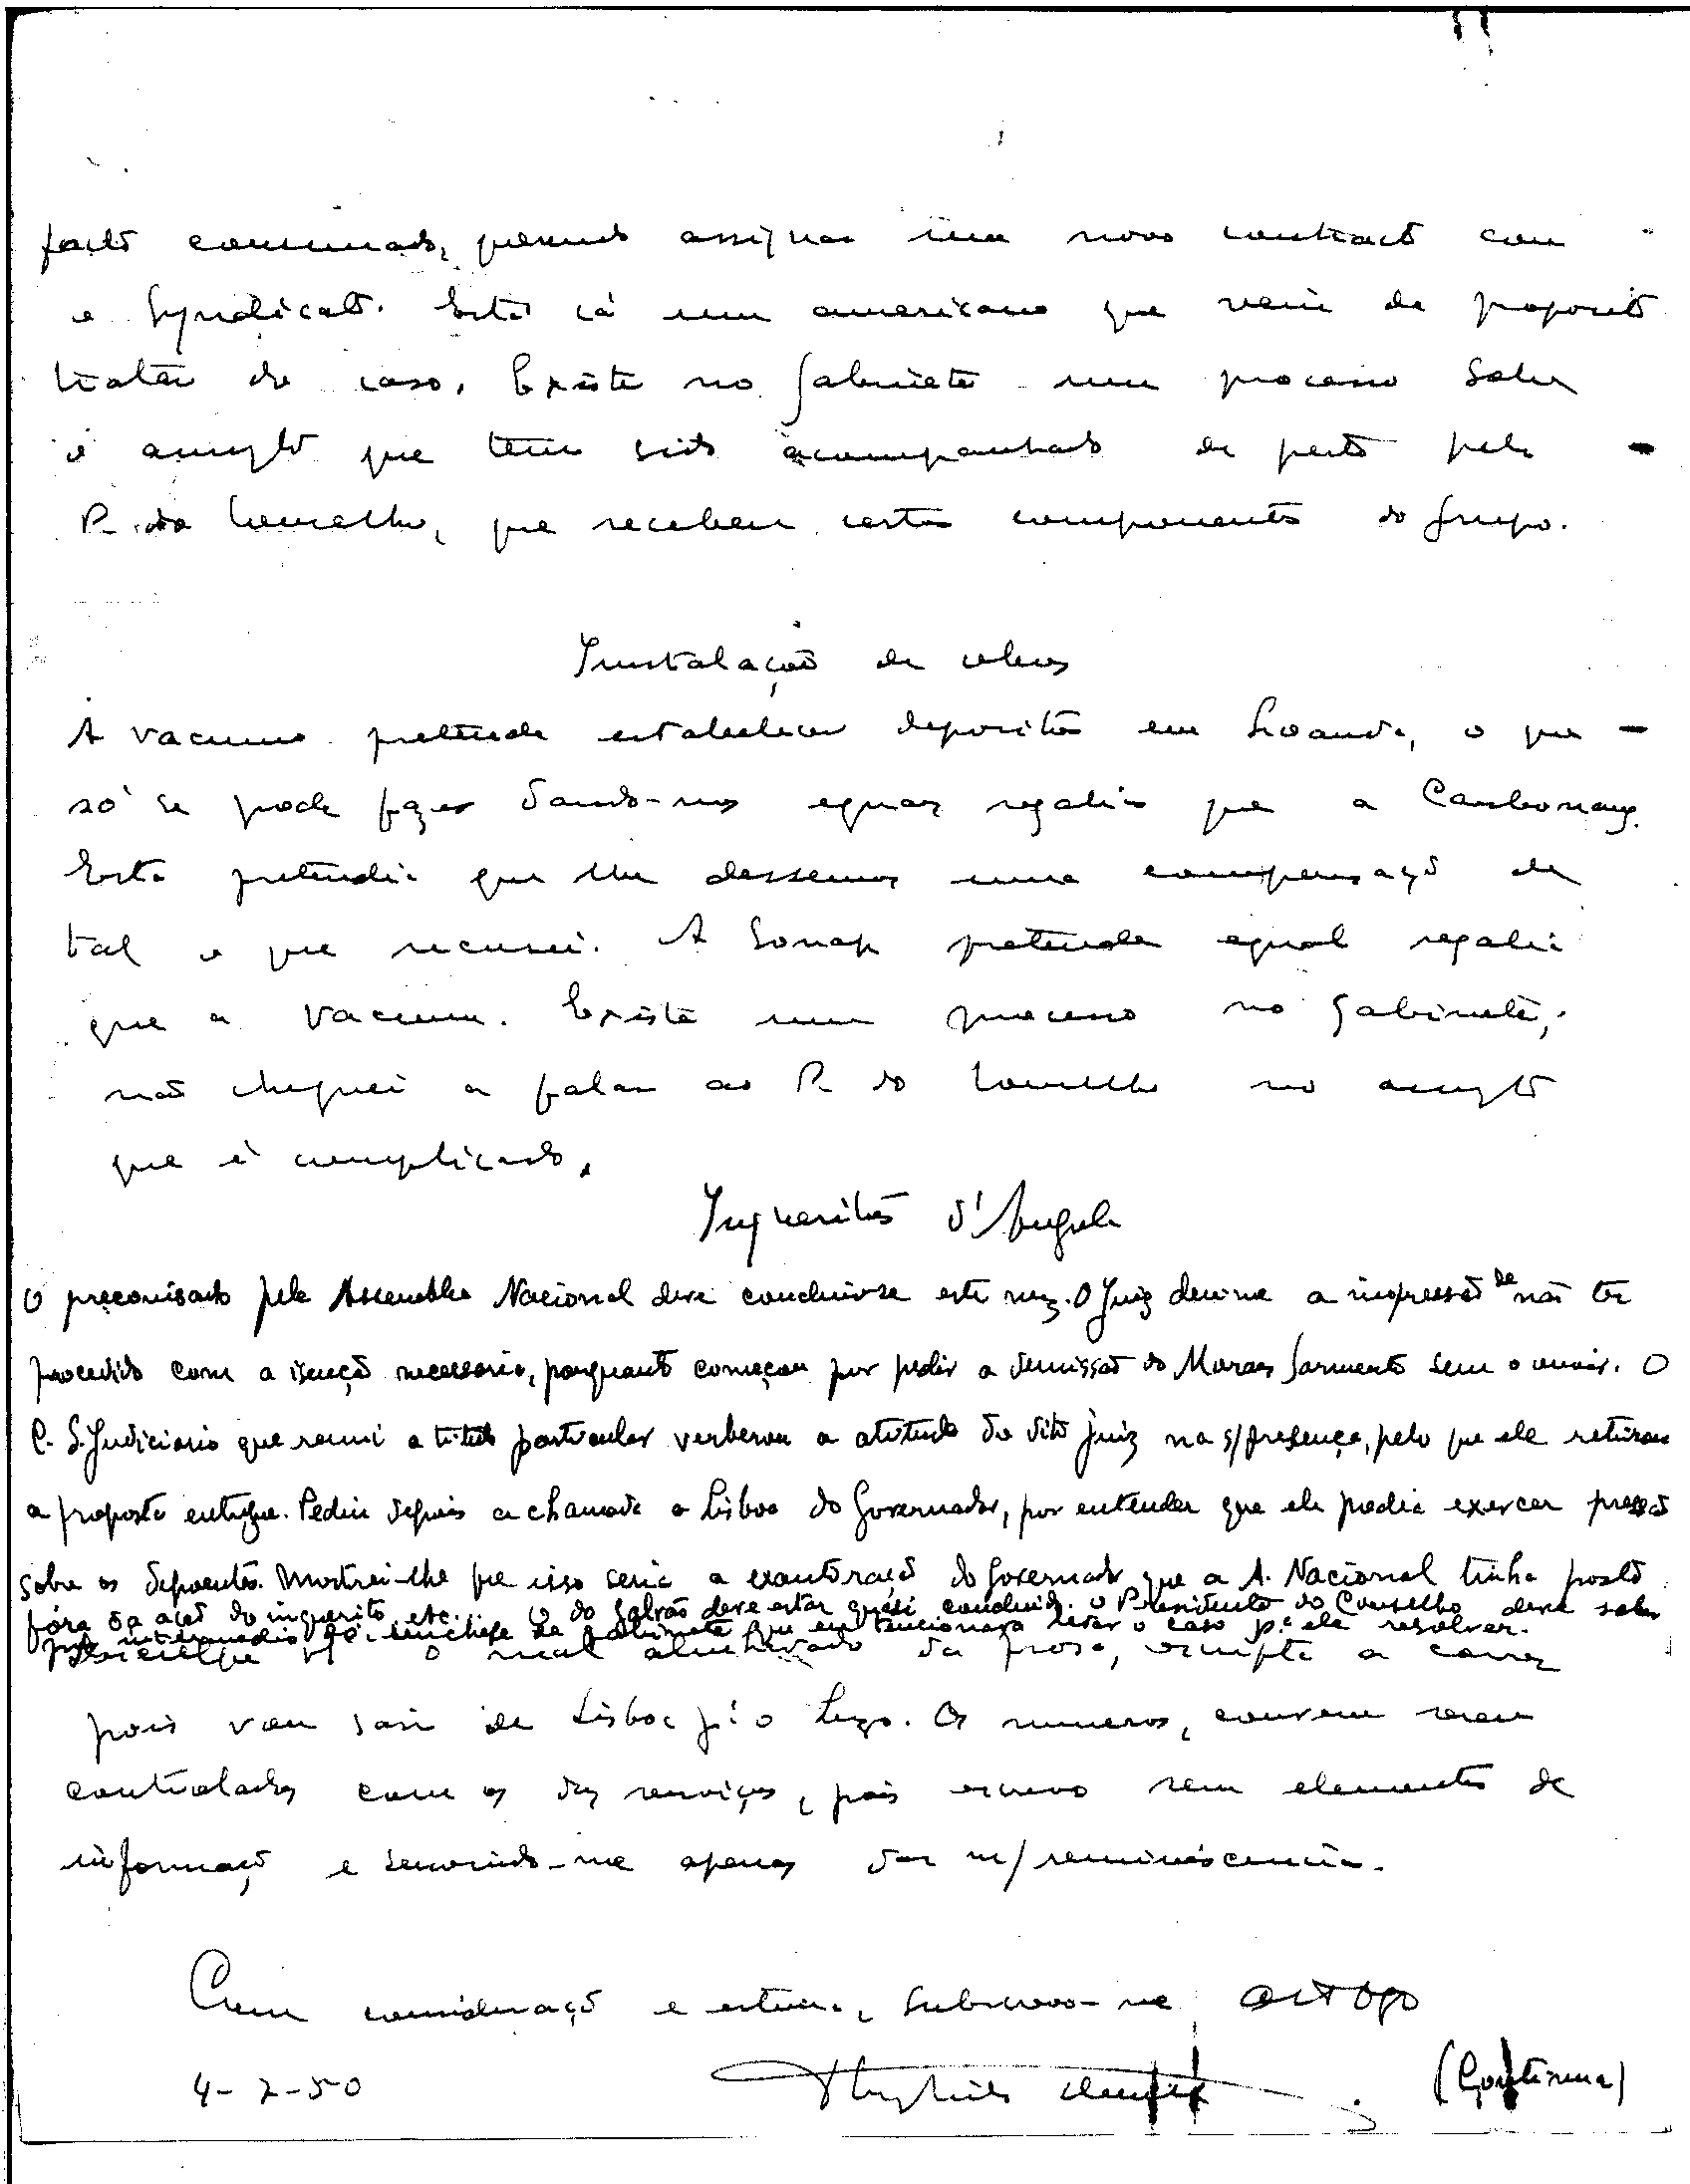 facto consumado, querendo assignar um novo contracto com
o Syndicato. Está cá um americano que veiu de proposito
tratar do caso. Existe no Gabinete um processo sobre
o assumpto que tem sido acompanhado de perto pelo
P. do Conselho, que recebeu certos componentes do grupo.
Installação de oleos
A Vacuum pretende estabelecer depositos em Loanda, o que
só se pode fazer dando-nos eguaes regalias que a Carbonang.
Esta pretendia que lhe dessemos uma compensação de
tal o que recusei. A Sonap pretende egual regalia
que a Vacuum. Existe um processo no Gabinete,
não cheguei a falar ao P. do Conselho no assumpto
que é complicado.
Inqueritos d'Angola
O preconisado pela Assemblea Nacional deve concluir-se este mez. O Juiz deu-me a impressão de não ter
procedido com a isenção necessaria, porquanto começou por pedir a demissão do Moraes Sarmento sem o ouvir. O
C. S. Judiciario que reuni a titulo particular verberou a atitude do dito juiz na s/presença, pelo que ele retirou
a proposta entregue. Pediu depois a chamada a Lisboa do Governador, por entender que ele podia exercer pressão
sobre os depoentes. Mostrei-lhe que isso seria a exautoração do Governador que a A. Nacional tinha posto
fóra da ação do inquerito, etc. O do Galvão deve estar quasi concluido. O Presidente do Conselho deve saber
por intermedio do seu chefe de gabinete que eu tencionava levar o caso p.ª ele resolver.
Desculpe V. o mal alinhavado da prosa, escripta a correr
pois vou sair de Lisboa p.ª o Luzo. Os numeros, convem serem
controlados com os dos serviços, pois escrevo sem elementos de
informação e servindo-me apenas das m/reminiscencias.
Com consideração e estima, subscrevo-me
4-2-50
(Continua)